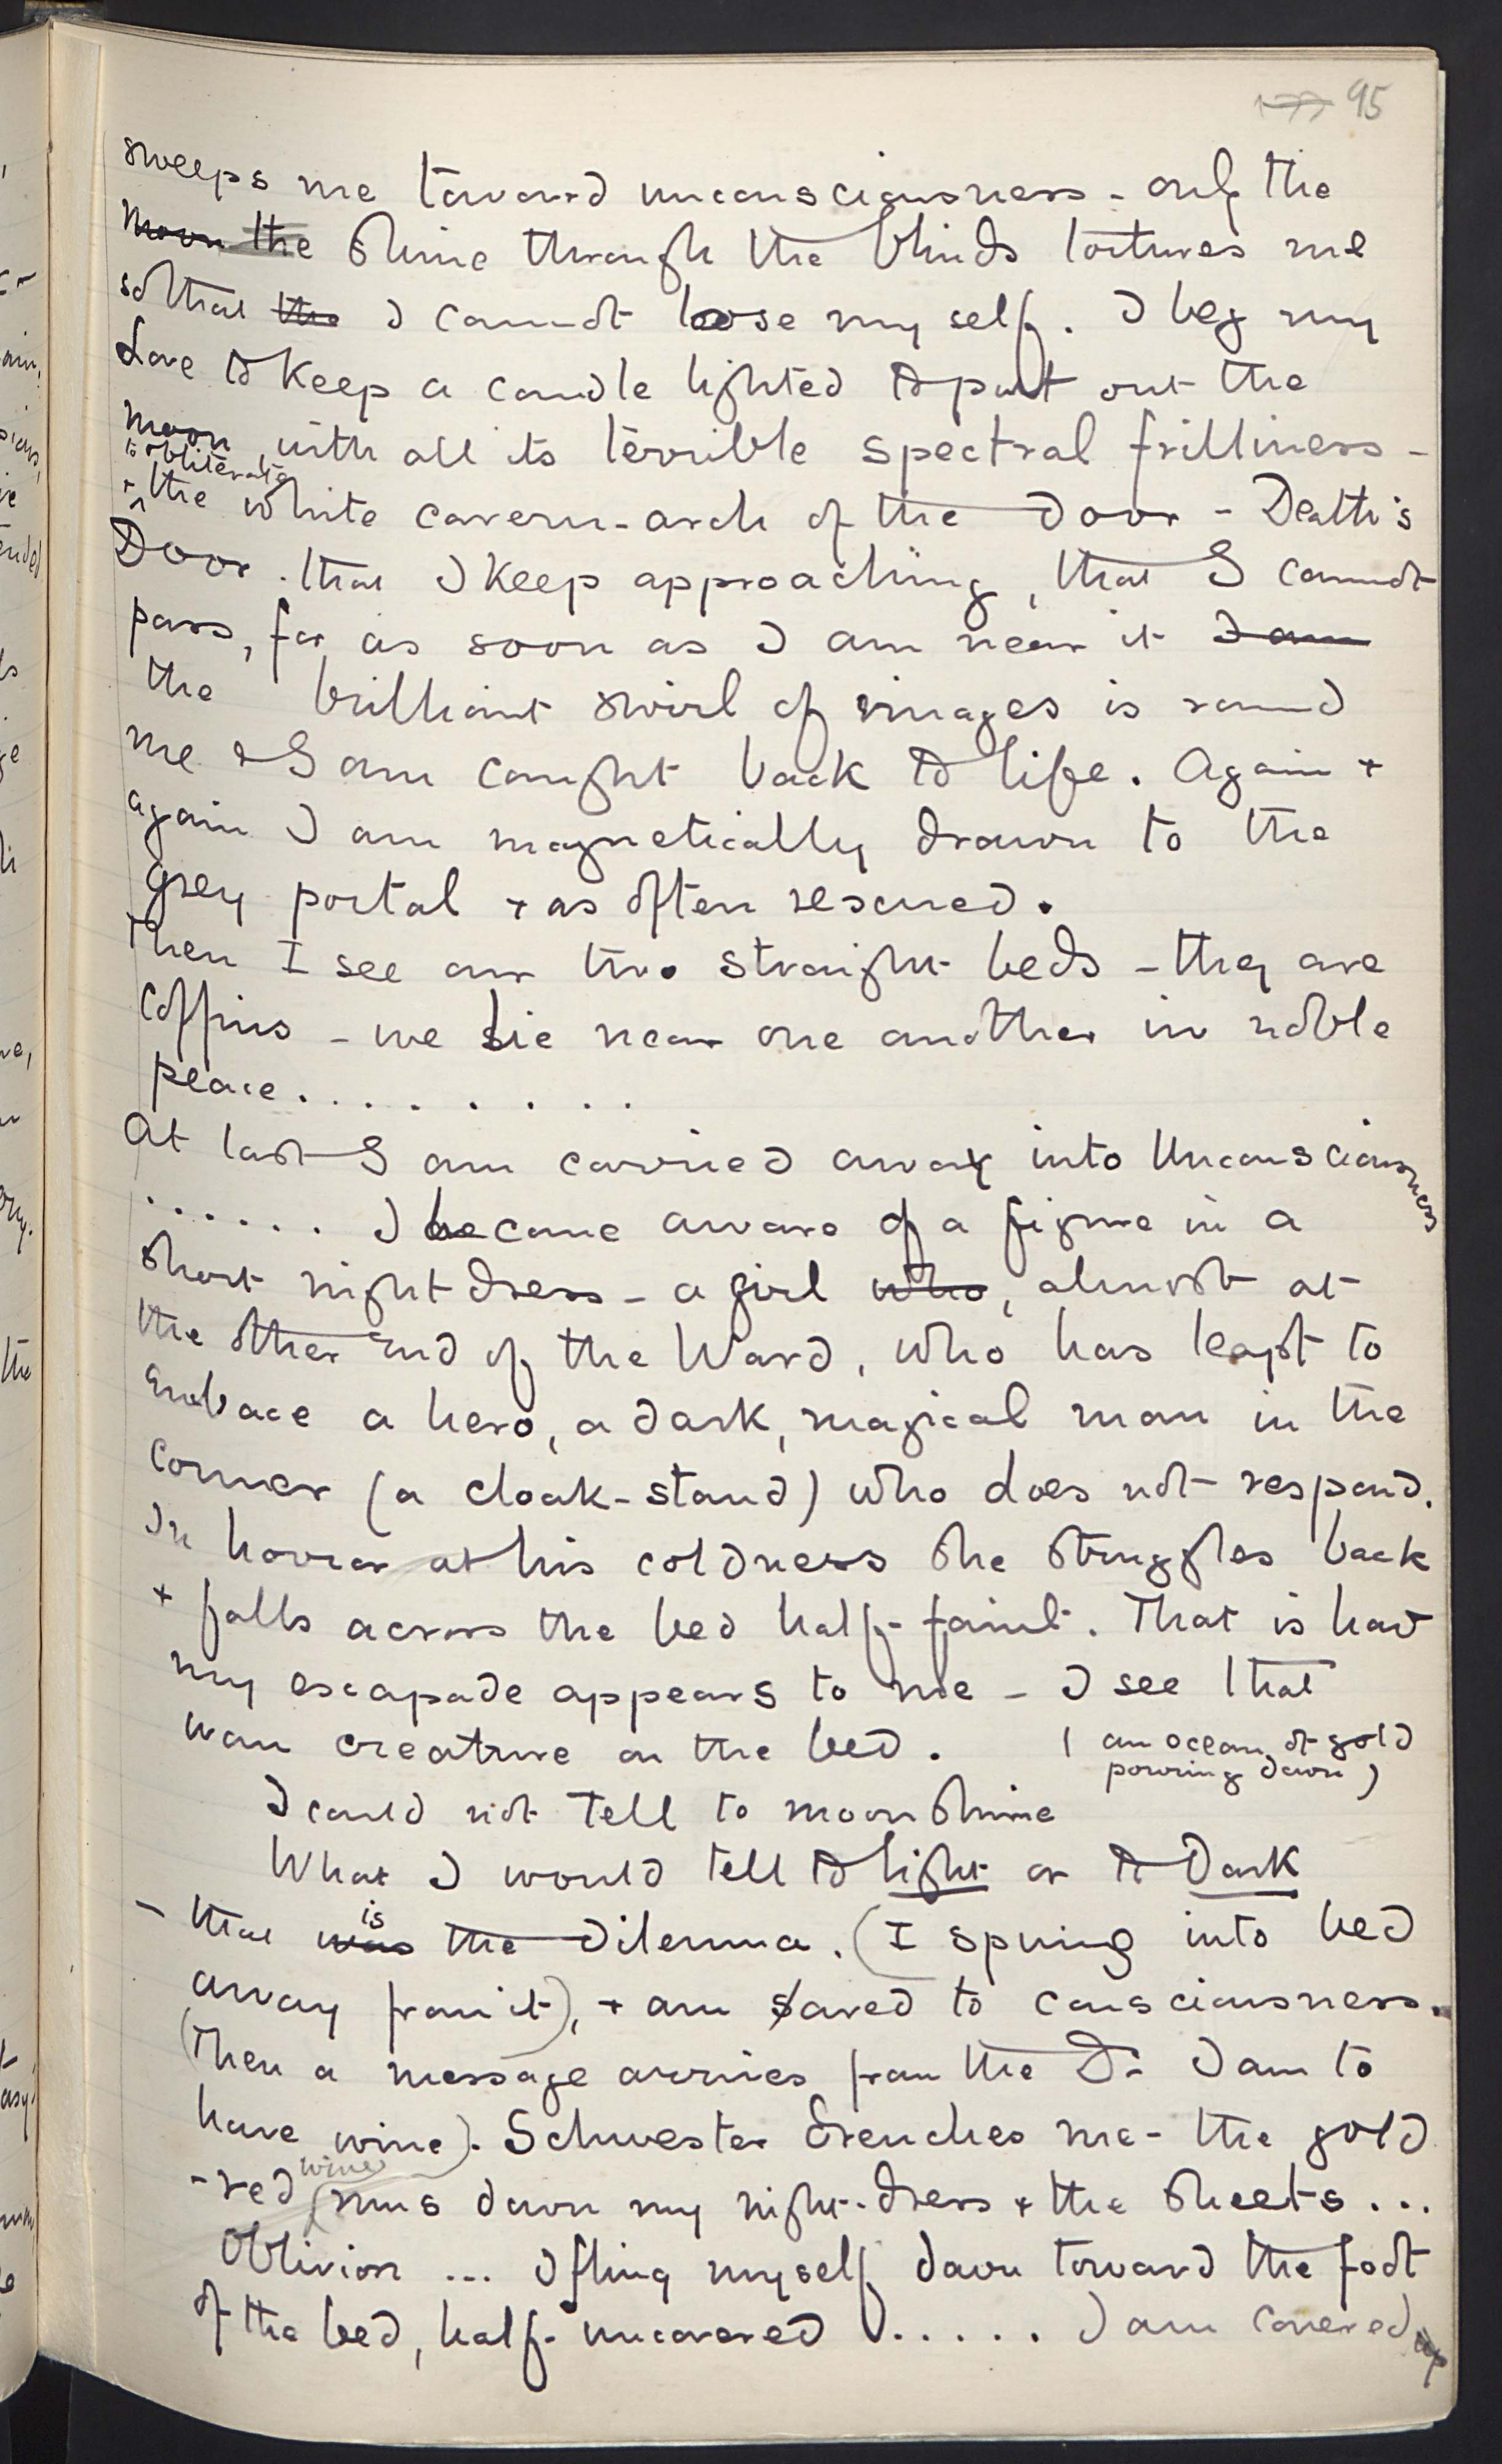 95
sweeps me toward unconsciousness - only the
Moon the shine through the blinds tortures me
so that the I cannot loose my self. I beg my
Love to keep a candle lighted to put out the
moon, with all its terrible spectral frilliness -
to obliterate
+ the white cavern-arch of the door - Death's
Door. that I keep approaching, that I cannot
pass, for as soon as I am near it I am
the brilliant swirl of images is round
me & I am caught back to life. Again +
again I am magnetically drawn to the
grey portal + as often rescued.
Then I see our two straight beds - they are
coffins - we lie near one another in noble
peace. . . . . . . . .
At last I am carried away into Unconsciousness
. . . . . . I become aware of a figure in a
short nightdress - a girl who, almost at
the other end of the Ward, who has leapt to
embrace a hero, a dark, magical man in the
corner (a cloak-stand) who does not respond.
In horror at his coldness she struggles back
+ falls across the bed half-faint. That is how
my escapade appears to me - I see that
wan creature on the bed. ( an ocean of gold
pouring down )
I could not tell to moonshine
What I would tell to light or to Dark
is
- that was the dilemma. (I spring into bed
away from it), + am saved to consciousness.
(Then a message arrives from the Dr I am to
have wine). Schwester drenches me - the gold
wine
-red runs down my night-dress + the sheets ...
Oblivion ... I fling myself down toward the foot
of the bed, half-uncovered . . . . . I am covered up